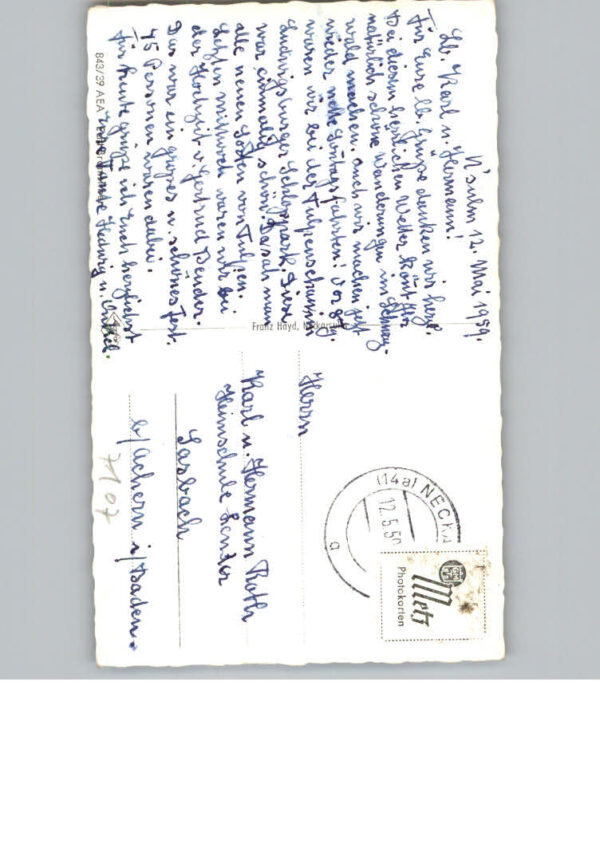 N'sulm 12. Mai 1959.
Lb. Karl u. Hermann!
Für Eure lb. Grüße danken wir herzl.
Bei diesem herrlichen Wetter könt Ihr
natürlich schöne Wanderungen im Schwarz-
wald machen. Auch wir machen jetzt
wieder nette Sontagsfahrten! Vor 8 Tg.
waren wir bei der Tulpenschau im
Ludwigsburger Schlosspark. Diese
war einmalig schön. Da sah man
alle neuen Sorten von Tulpen.
Letzten Mittwoch waren wir bei
der Hochzeit v. Gertrud Bender.
Das war ein großes u. schönes Fest.
45 Personen waren dabei.
Für heute grüße ich Euch herzlichst
Eure Tante Hedwig u. Onkel.
843/39 AEA
Franz Hayd, Neckarsulm
(14a) NECKA
12.5.59
a
Metz
Photokarten
Herrn
Karl u. Hermann Roth
Heimschule Lender
Sasbach
b/ Achern i/ Baden.
7107